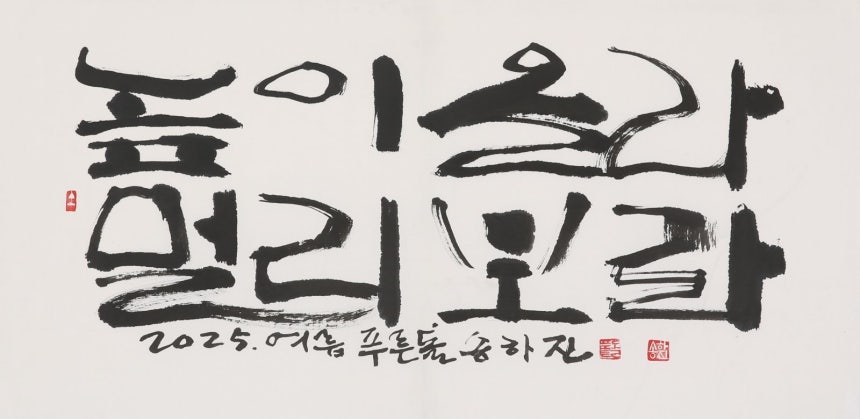 높이 올라
멀리 보라
2025. 여름 푸른돌 송하진